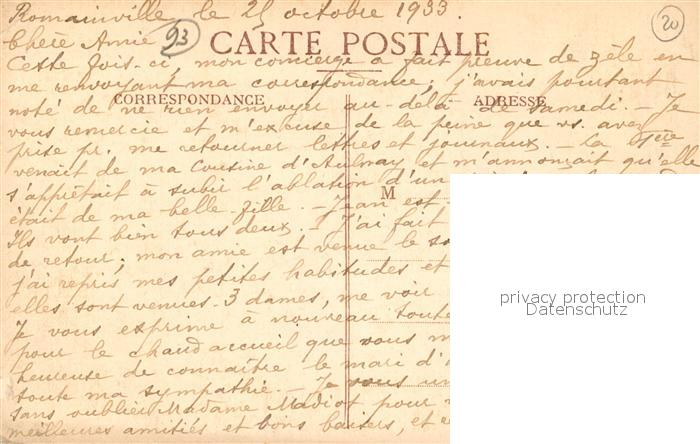 Romainville, le 25 octobre 1933.
Chère Amie 93 20
CARTE POSTALE
Cette fois-ci, mon concierge a fait preuve de zèle en
me renvoyant ma correspondance; j'avais pourtant
CORRESPONDANCE ADRESSE
noté de ne rien envoyer au-delà de samedi. - Je
vous remercie et m'excuse de la peine que vs. avez
prise pr. me retourner lettres et journaux. - La
venait de ma Cousine d'Aulnay et m'annonçait qu'elle
s'apprêtait à subir l'ablation d'un
M
était de ma belle-fille. - Jean est
Ils vont bien tous deux. - J'ai fait
de retour; mon amie est venue le
j'ai repris mes petites habitudes et
elles sont venues 3 dames, me voir
Je vous exprime à nouveau toute
pour le chaud accueil que vous m
heureuse de connaître le mari d'
toute ma sympathie. - Je vous
sans oublier Madame Madiot pour
meilleures amitiés et bons baisers, et
privacy protection
Datenschutz